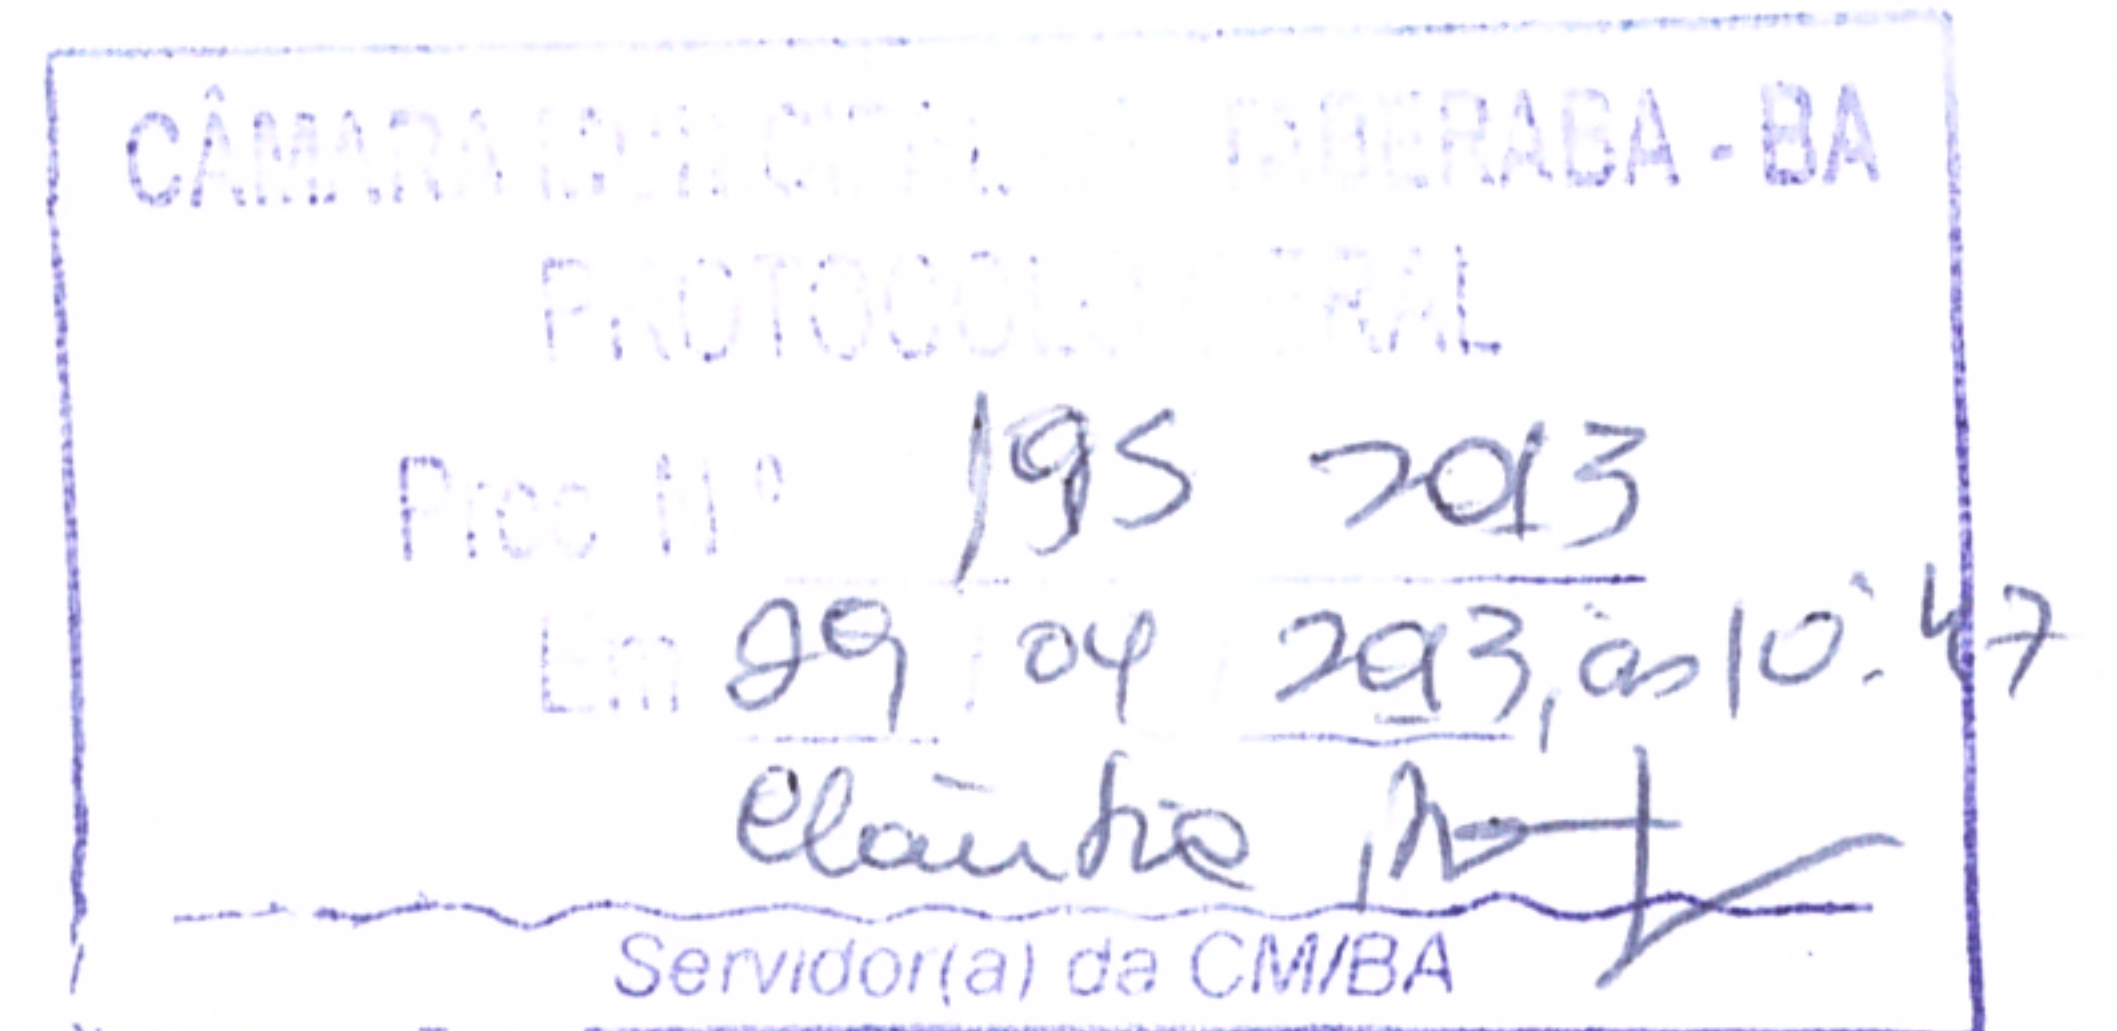 CÂMARA MUNICIPAL ITABERABA - BA
PROTOCOLO GERAL
Proc Nº 195 2013
Em 29 04 2013, às 10:47
Claudia
Servidor(a) da CM/BA